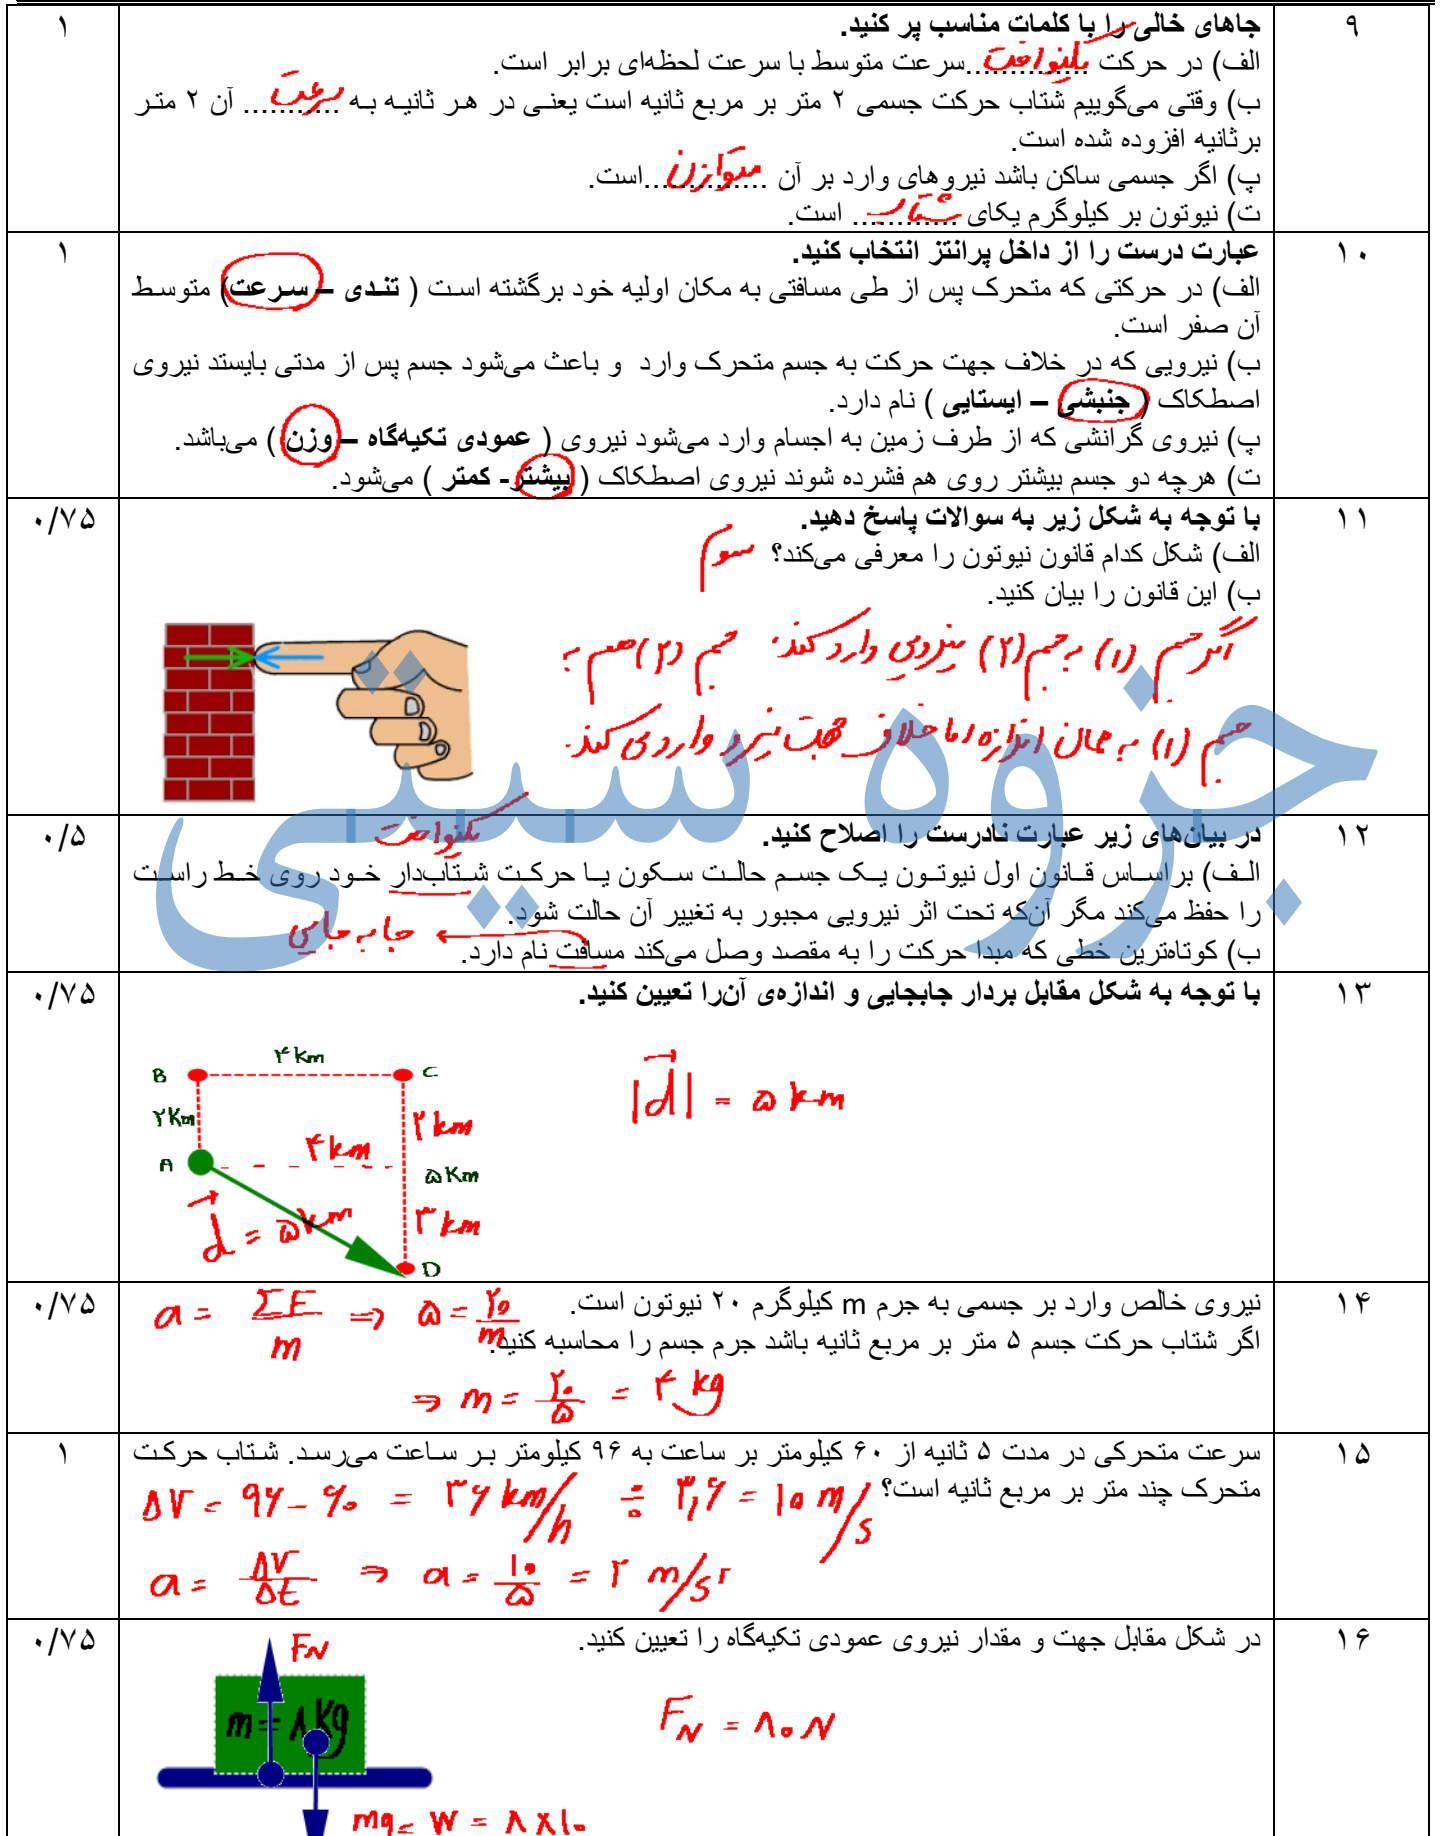 ۹
جاهای خالی را با کلمات مناسب پر کنید.
۱
الف) در حرکت یکنواخت سرعت متوسط با سرعت لحظه‌ای برابر است.
ب) وقتی می‌گوییم شتاب حرکت جسمی ۲ متر بر مربع ثانیه است یعنی در هر ثانیه به سرعت آن ۲ متر
برثانیه افزوده شده است.
پ) اگر جسمی ساکن باشد نیروهای وارد بر آن متوازن است.
ت) نیوتون بر کیلوگرم یکای شتاب است.
۱۰
عبارت درست را از داخل پرانتز انتخاب کنید.
۱
الف) در حرکتی که متحرک پس از طی مسافتی به مکان اولیه خود برگشته است ( تندی – سرعت) متوسط
آن صفر است.
ب) نیرویی که در خلاف جهت حرکت به جسم متحرک وارد و باعث می‌شود جسم پس از مدتی بایستد نیروی
اصطکاک ( جنبشی – ایستایی ) نام دارد.
پ) نیروی گرانشی که از طرف زمین به اجسام وارد می‌شود نیروی ( عمودی تکیه‌گاه – وزن ) می‌باشد.
ت) هرچه دو جسم بیشتر روی هم فشرده شوند نیروی اصطکاک ( بیشتر- کمتر ) می‌شود.
۱۱
با توجه به شکل زیر به سوالات پاسخ دهید.
۰/۷۵
الف) شکل کدام قانون نیوتون را معرفی می‌کند؟ سوم
ب) این قانون را بیان کنید.
اگر جسم (۱) به جسم (۲) نیرویی وارد کند، جسم (۲) هم به
جسم (۱) به همان اندازه اما خلاف جهت نیرو وارد می کند.
جزوه سیتی
۱۲
در بیان‌های زیر عبارت نادرست را اصلاح کنید.
۰/۵
یکنواخت
الف) براساس قانون اول نیوتون یک جسم حالت سکون یا حرکت شتاب‌دار خود روی خط راست
را حفظ می‌کند مگر آن‌که تحت اثر نیرویی مجبور به تغییر آن حالت شود.
جابه‌جایی
ب) کوتاه‌ترین خطی که مبدا حرکت را به مقصد وصل می‌کند مسافت نام دارد.
۱۳
با توجه به شکل مقابل بردار جابجایی و اندازه‌ی آن‌را تعیین کنید.
۰/۷۵
۴ Km
B C
۲ Km
۲ km
|d⃗| = ۵ km
A
۴ km
۵ Km
d⃗ = ۵ km
۳ km
D
۱۴
نیروی خالص وارد بر جسمی به جرم m کیلوگرم ۲۰ نیوتون است.
۰/۷۵
اگر شتاب حرکت جسم ۵ متر بر مربع ثانیه باشد جرم جسم را محاسبه کنید.
a = ΣF/m ⇒ ۵ = ۲۰/m
⇒ m = ۲۰/۵ = ۴ kg
۱۵
سرعت متحرکی در مدت ۵ ثانیه از ۶۰ کیلومتر بر ساعت به ۹۶ کیلومتر بر ساعت می‌رسد. شتاب حرکت
۱
متحرک چند متر بر مربع ثانیه است؟
ΔV = ۹۶ - ۶۰ = ۳۶ km/h ÷ ۳,۶ = ۱۰ m/s
a = ΔV/Δt ⇒ a = ۱۰/۵ = ۲ m/s²
۱۶
در شکل مقابل جهت و مقدار نیروی عمودی تکیه‌گاه را تعیین کنید.
۰/۷۵
FN
m = ۸ Kg
FN = ۸۰ N
mg = W = ۸ × ۱۰